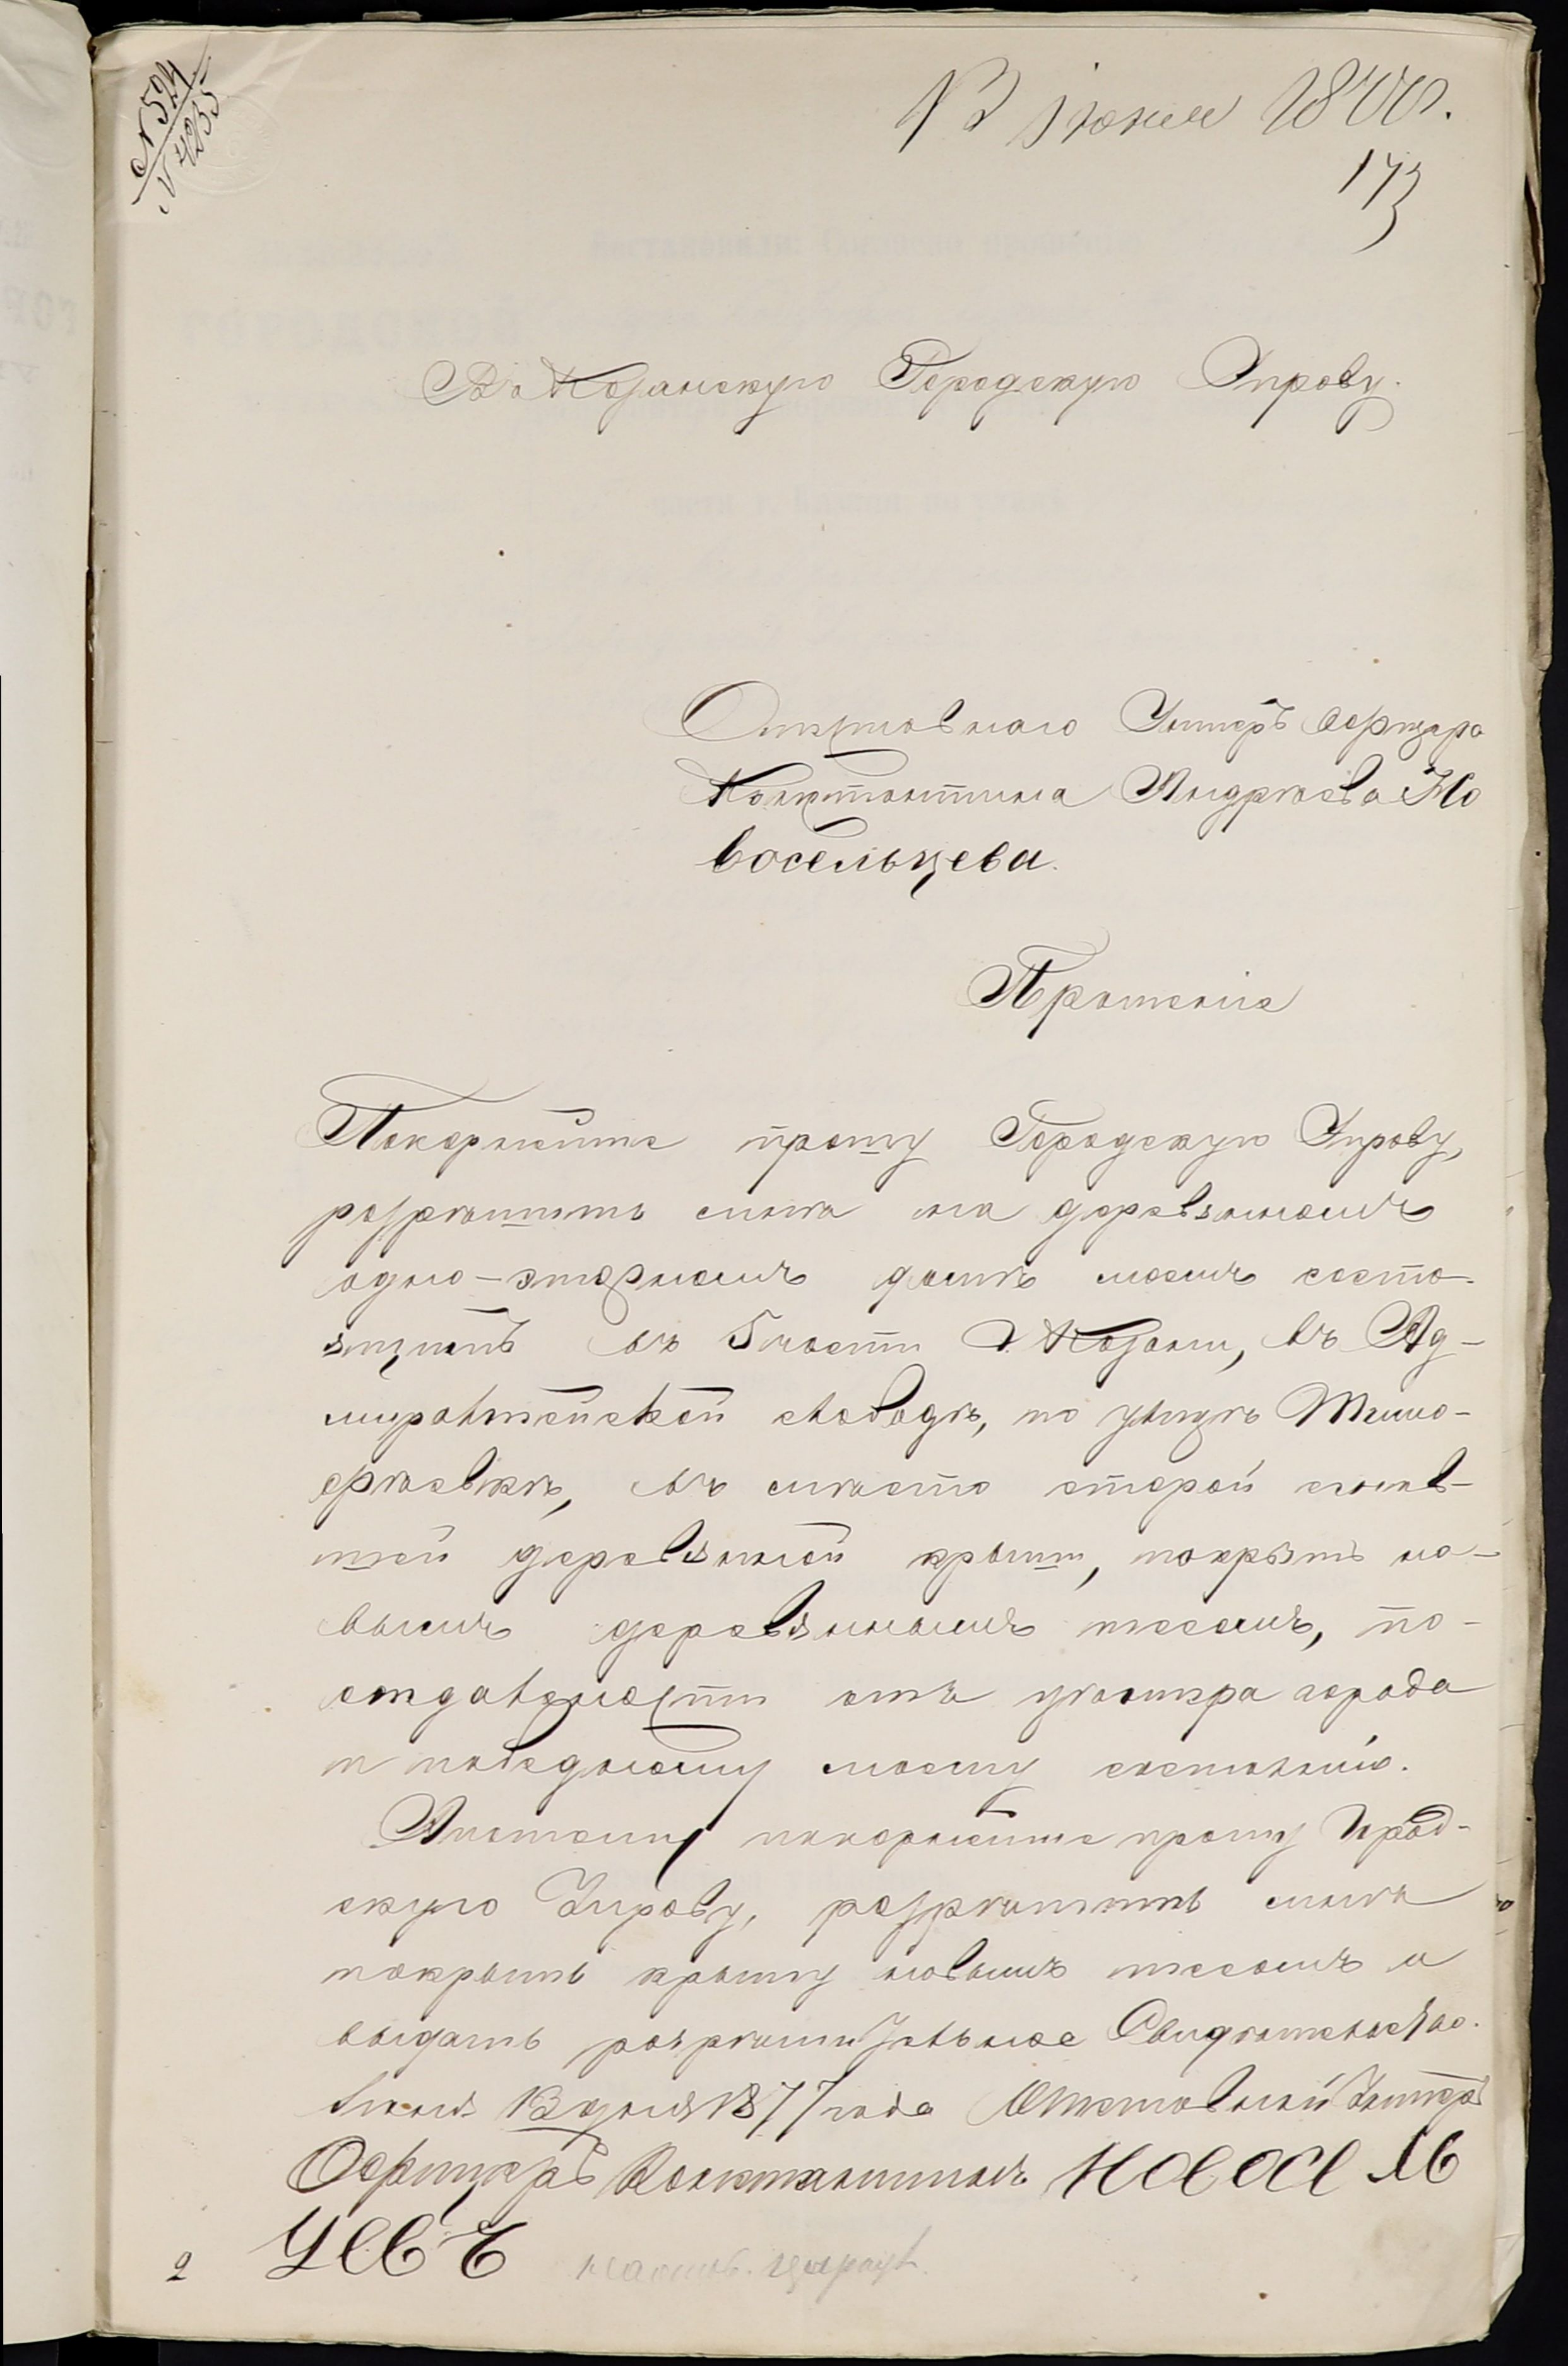 № 524
№ 4235
13 июня 1877.
173
Въ Казанскую Городскую Управу.
Отставнаго Унтеръ Офицера
Константина Андреева Но
восельцева.
Прошеніе
Покорнейше прошу Городскую Управу,
разрѣшить мнѣ на деревянномъ
одно-этажномъ домѣ моемъ состо-
ящимъ въ 5 части г. Казани, въ Ад-
миралтейской слободѣ, по улицѣ Тимо-
фѣевкѣ, въ мѣсто старой сгнив-
шей деревянной крыши, покрыть но-
вымъ деревяннымъ тесомъ, по
отдаленности отъ центра города
и по бѣдному моему состоянию.
А потому покорнейше прошу Город-
скую Управу, разрѣшить мнѣ
покрыть крышу новымъ тесомъ и
выдать разрѣшительное Свидѣтельство.
Июня 13 дня 1877 года Отставной Унтеръ
Офицеръ Константинъ Новосель
цевъ
2